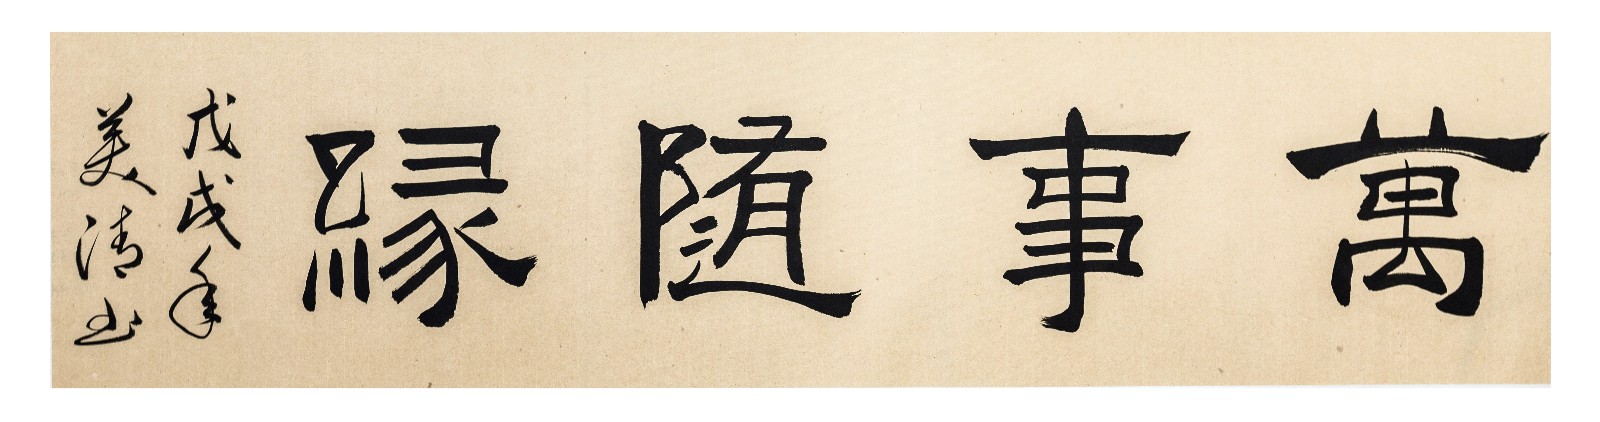 萬事随緣
戊戌年
美清书